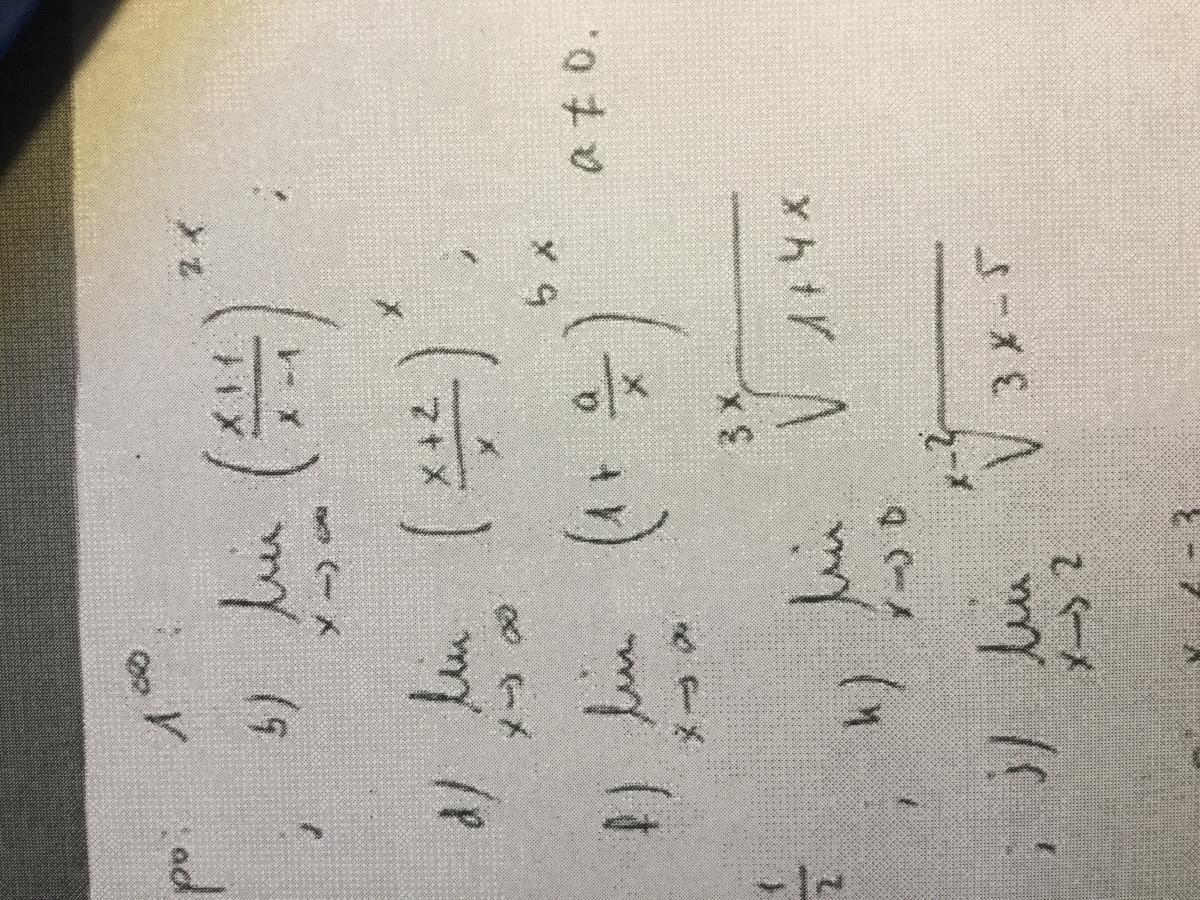 po: 1^∞:
, b) lim x→∞ ((x+1)/(x-1))^2x ;
d) lim x→∞ ((x+2)/x)^x ,
f) lim x→∞ (1+a/x)^bx a≠0.
1/2 , h) lim x→0 ^3x√(1+4x)
, j) lim x→2 ^x-2√(3x-5)